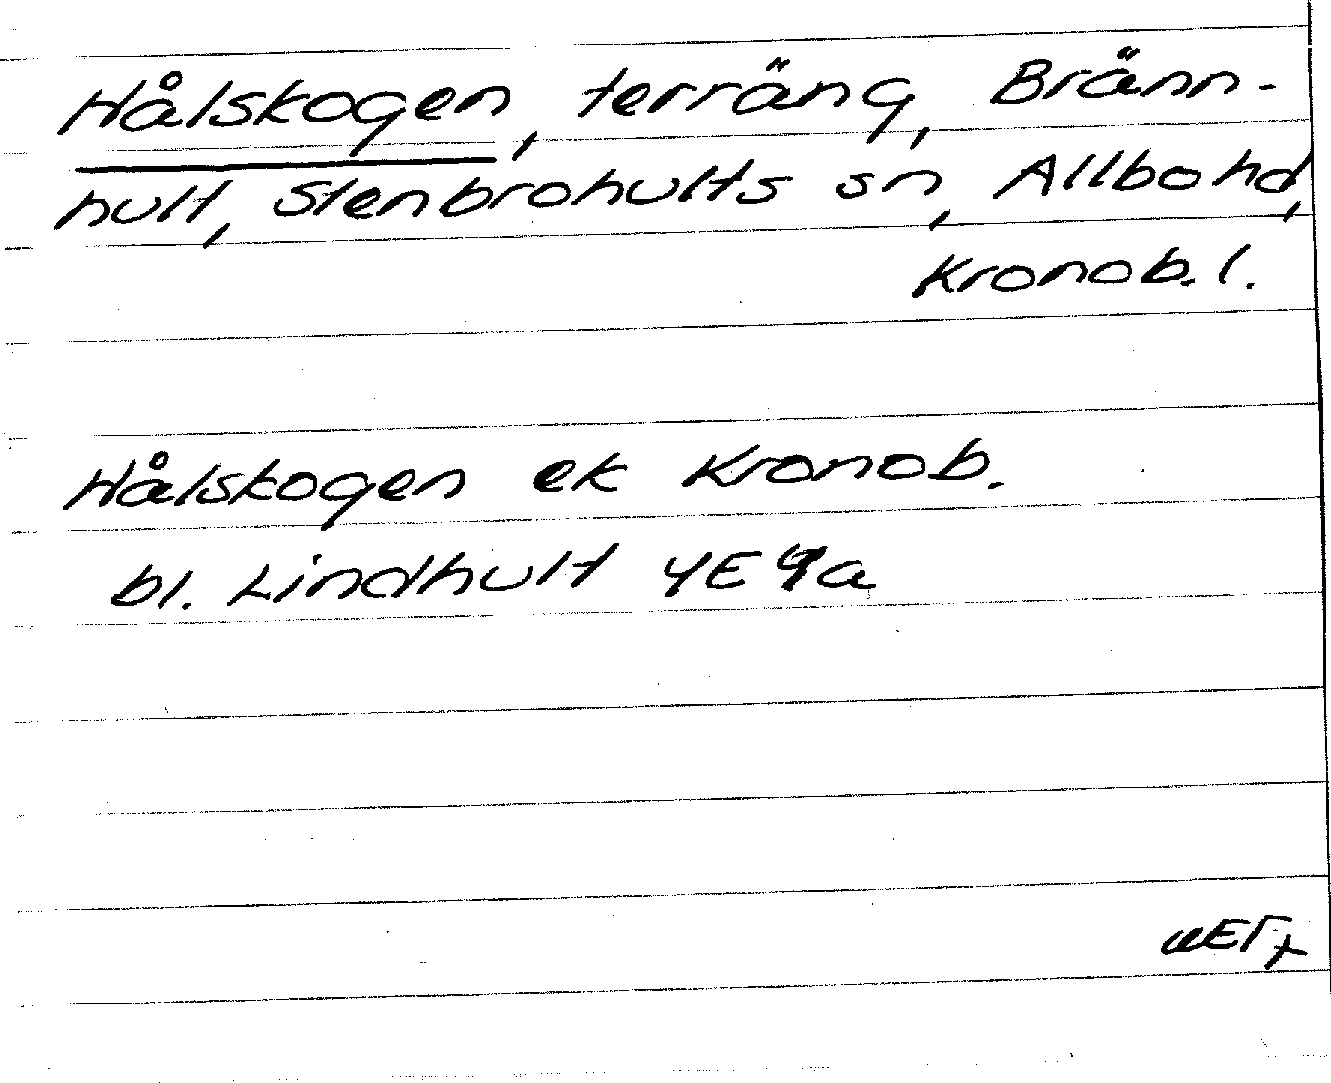 Hålskogen, terräng, Bränn-
hult, Stenbrohults sn, Allbo hd,
Kronob. l.
Hålskogen ek Kronob.
bl. Lindhult 4E 9a